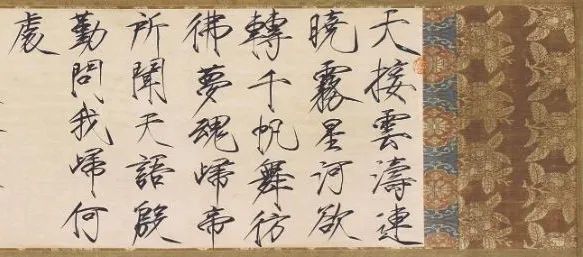 天接雲濤連
曉霧星河欲
轉千帆舞彷
彿夢魂歸帝
所聞天語殷
勤問我歸何
處